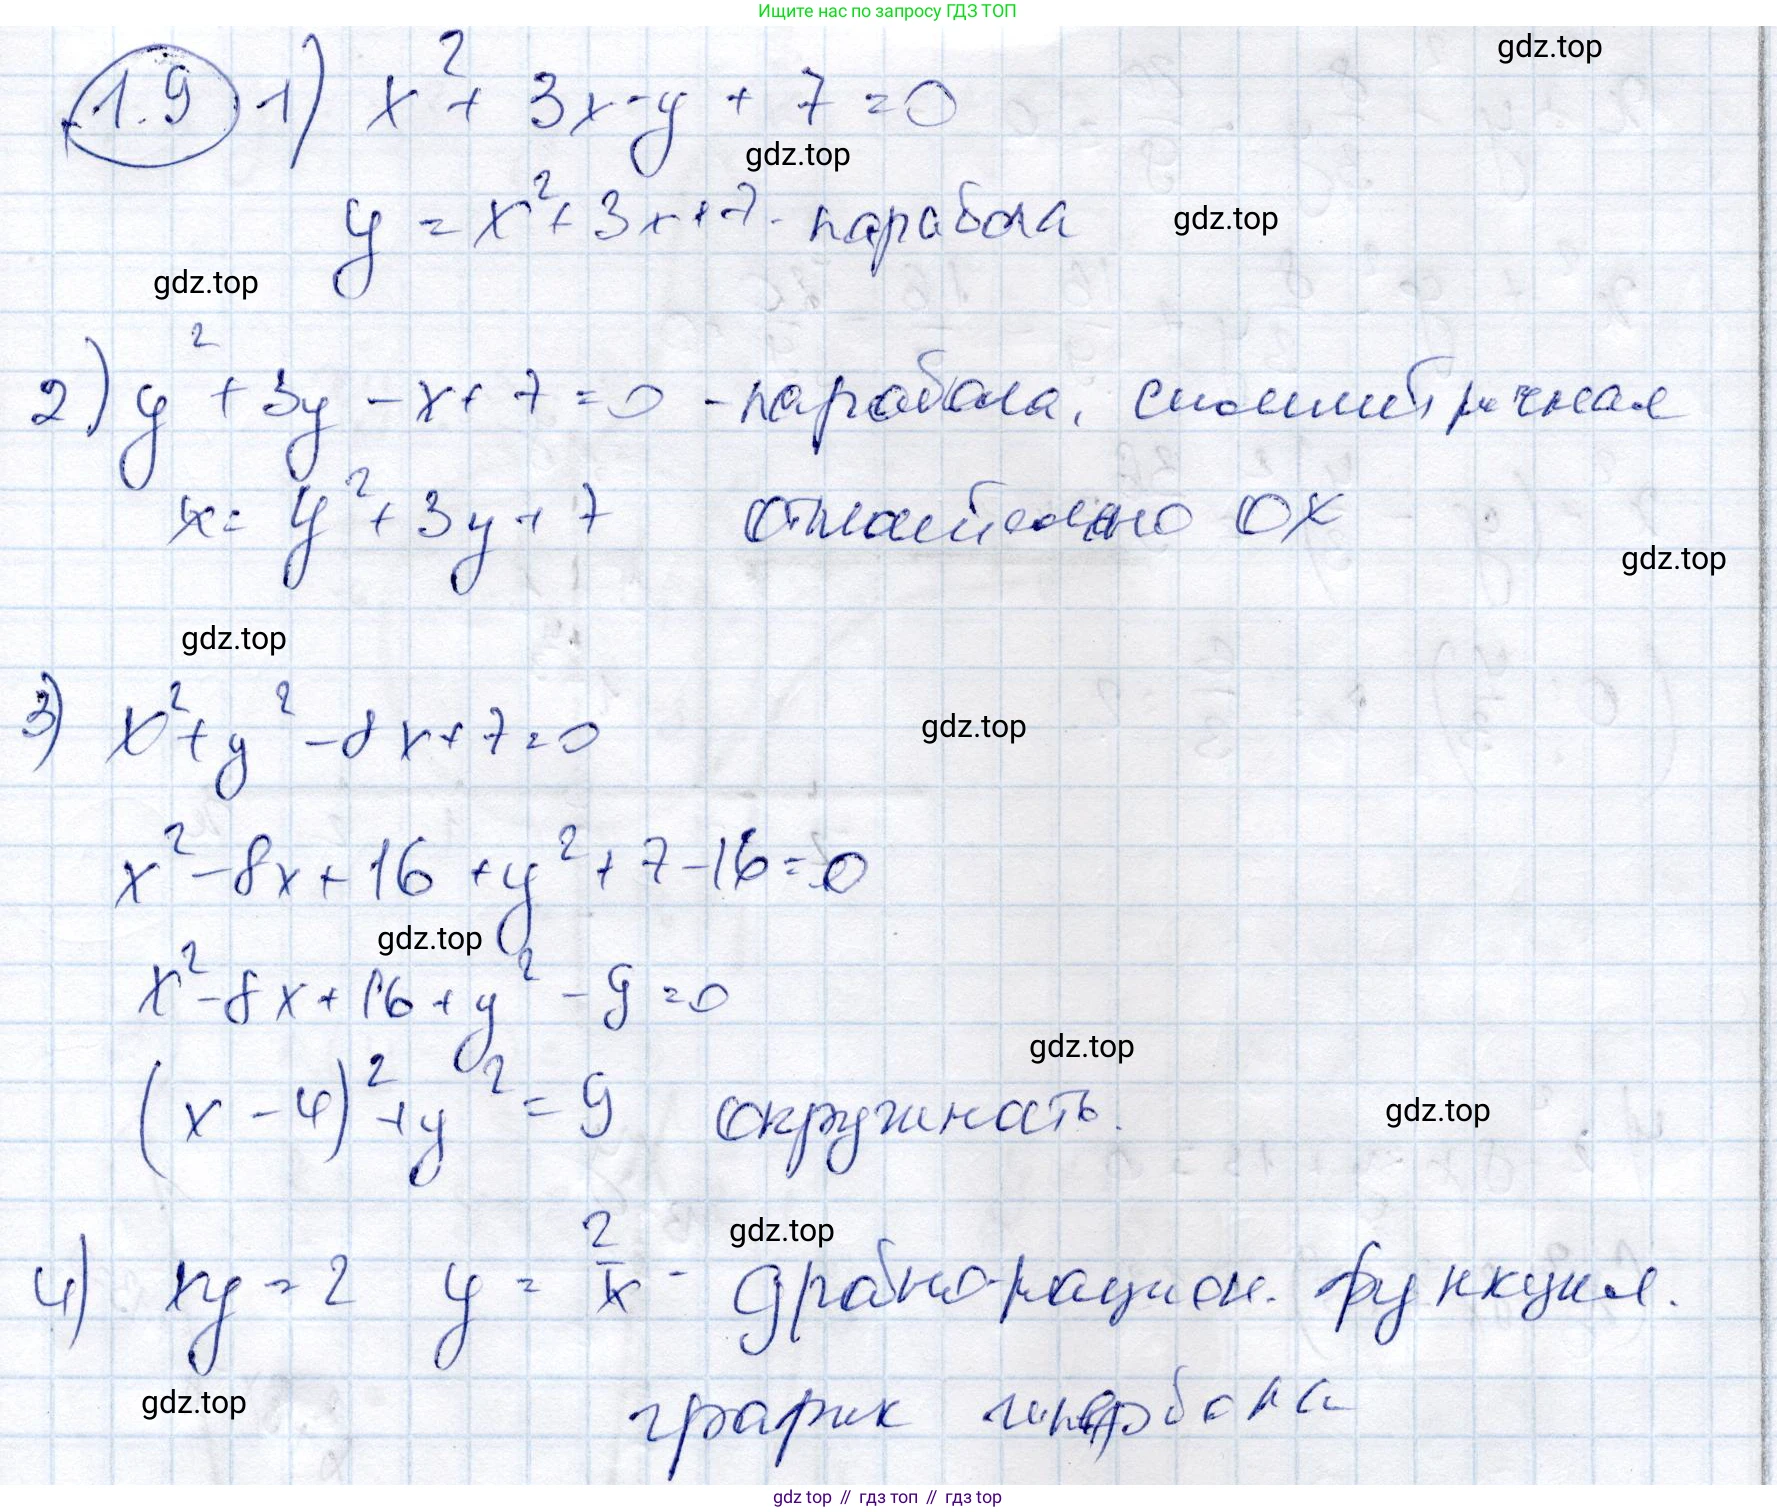 Ищите нас по запросу ГДЗ ТОП
gdz.top
1.9 1) x² + 3x - y + 7 = 0
gdz.top
y = x² + 3x + 7 - парабола
gdz.top
gdz.top
2) y² + 3y - x + 7 = 0 - парабола, симметричная
x = y² + 3y + 7 относительно OX
gdz.top
gdz.top
3) x² + y² - 8x + 7 = 0
gdz.top
x² - 8x + 16 + y² + 7 - 16 = 0
gdz.top
x² - 8x + 16 + y² - 9 = 0
gdz.top
(x - 4)² + y² = 9 окружность.
gdz.top
gdz.top
4) xy = 2 y = 2/x - дробно-рацион. функция.
gdz.top
график гипербола
gdz top // гдз топ // гдз top